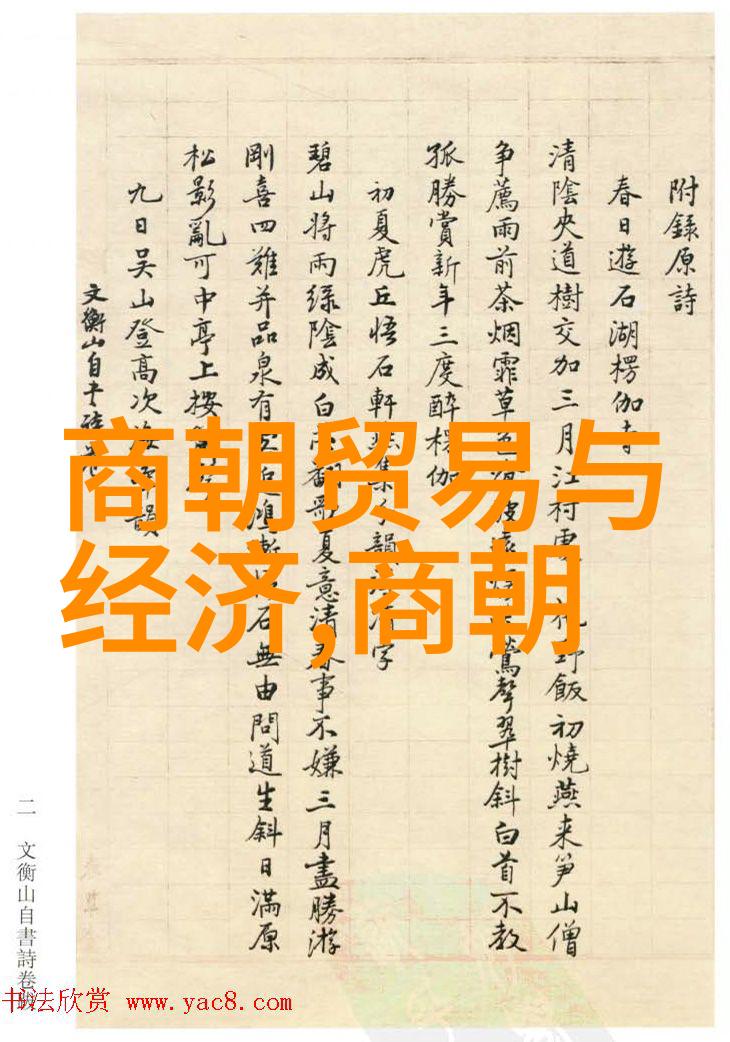 附錄原詩
春日遊石湖楞伽寺
清陰夾道樹交加三月江村野飯初燒燕来笋山僧
争薦雨前茶烟霏草色鶯聲翠樹斜白首不教
孤勝賞新年三度醉楞伽
初夏虎丘悟石軒集分韻字
碧山將雨綠陰成白夏意清春事不嫌三月盡勝游
剛喜四難并品泉有石無由問道生斜日滿原
松影亂可中亭上按
九日吳山登高次韻
文衡山自書詩卷
商朝贸易与
经济,商朝
二 文衡山自書詩卷跋
书法欣赏 www.yac8.com